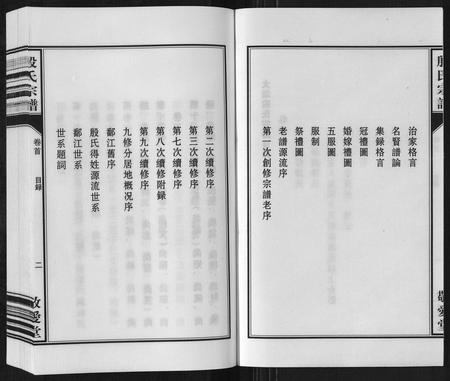 殷氏宗譜
治家格言
名賢譜論
集錄格言
冠禮圖
婚嫁禮圖
五服圖
服制
祭禮圖
老譜源流序
第一次創修宗譜老序
敬愛堂
第二次續修序
第三次續修序
第七次續修序
第八次續修附錄
第九次續修序
九修分居地概况序
鄱江舊序
殷氏得姓源流世系
鄱江世系
世系題詞
殷氏宗譜
卷首
目錄
二
敬愛堂